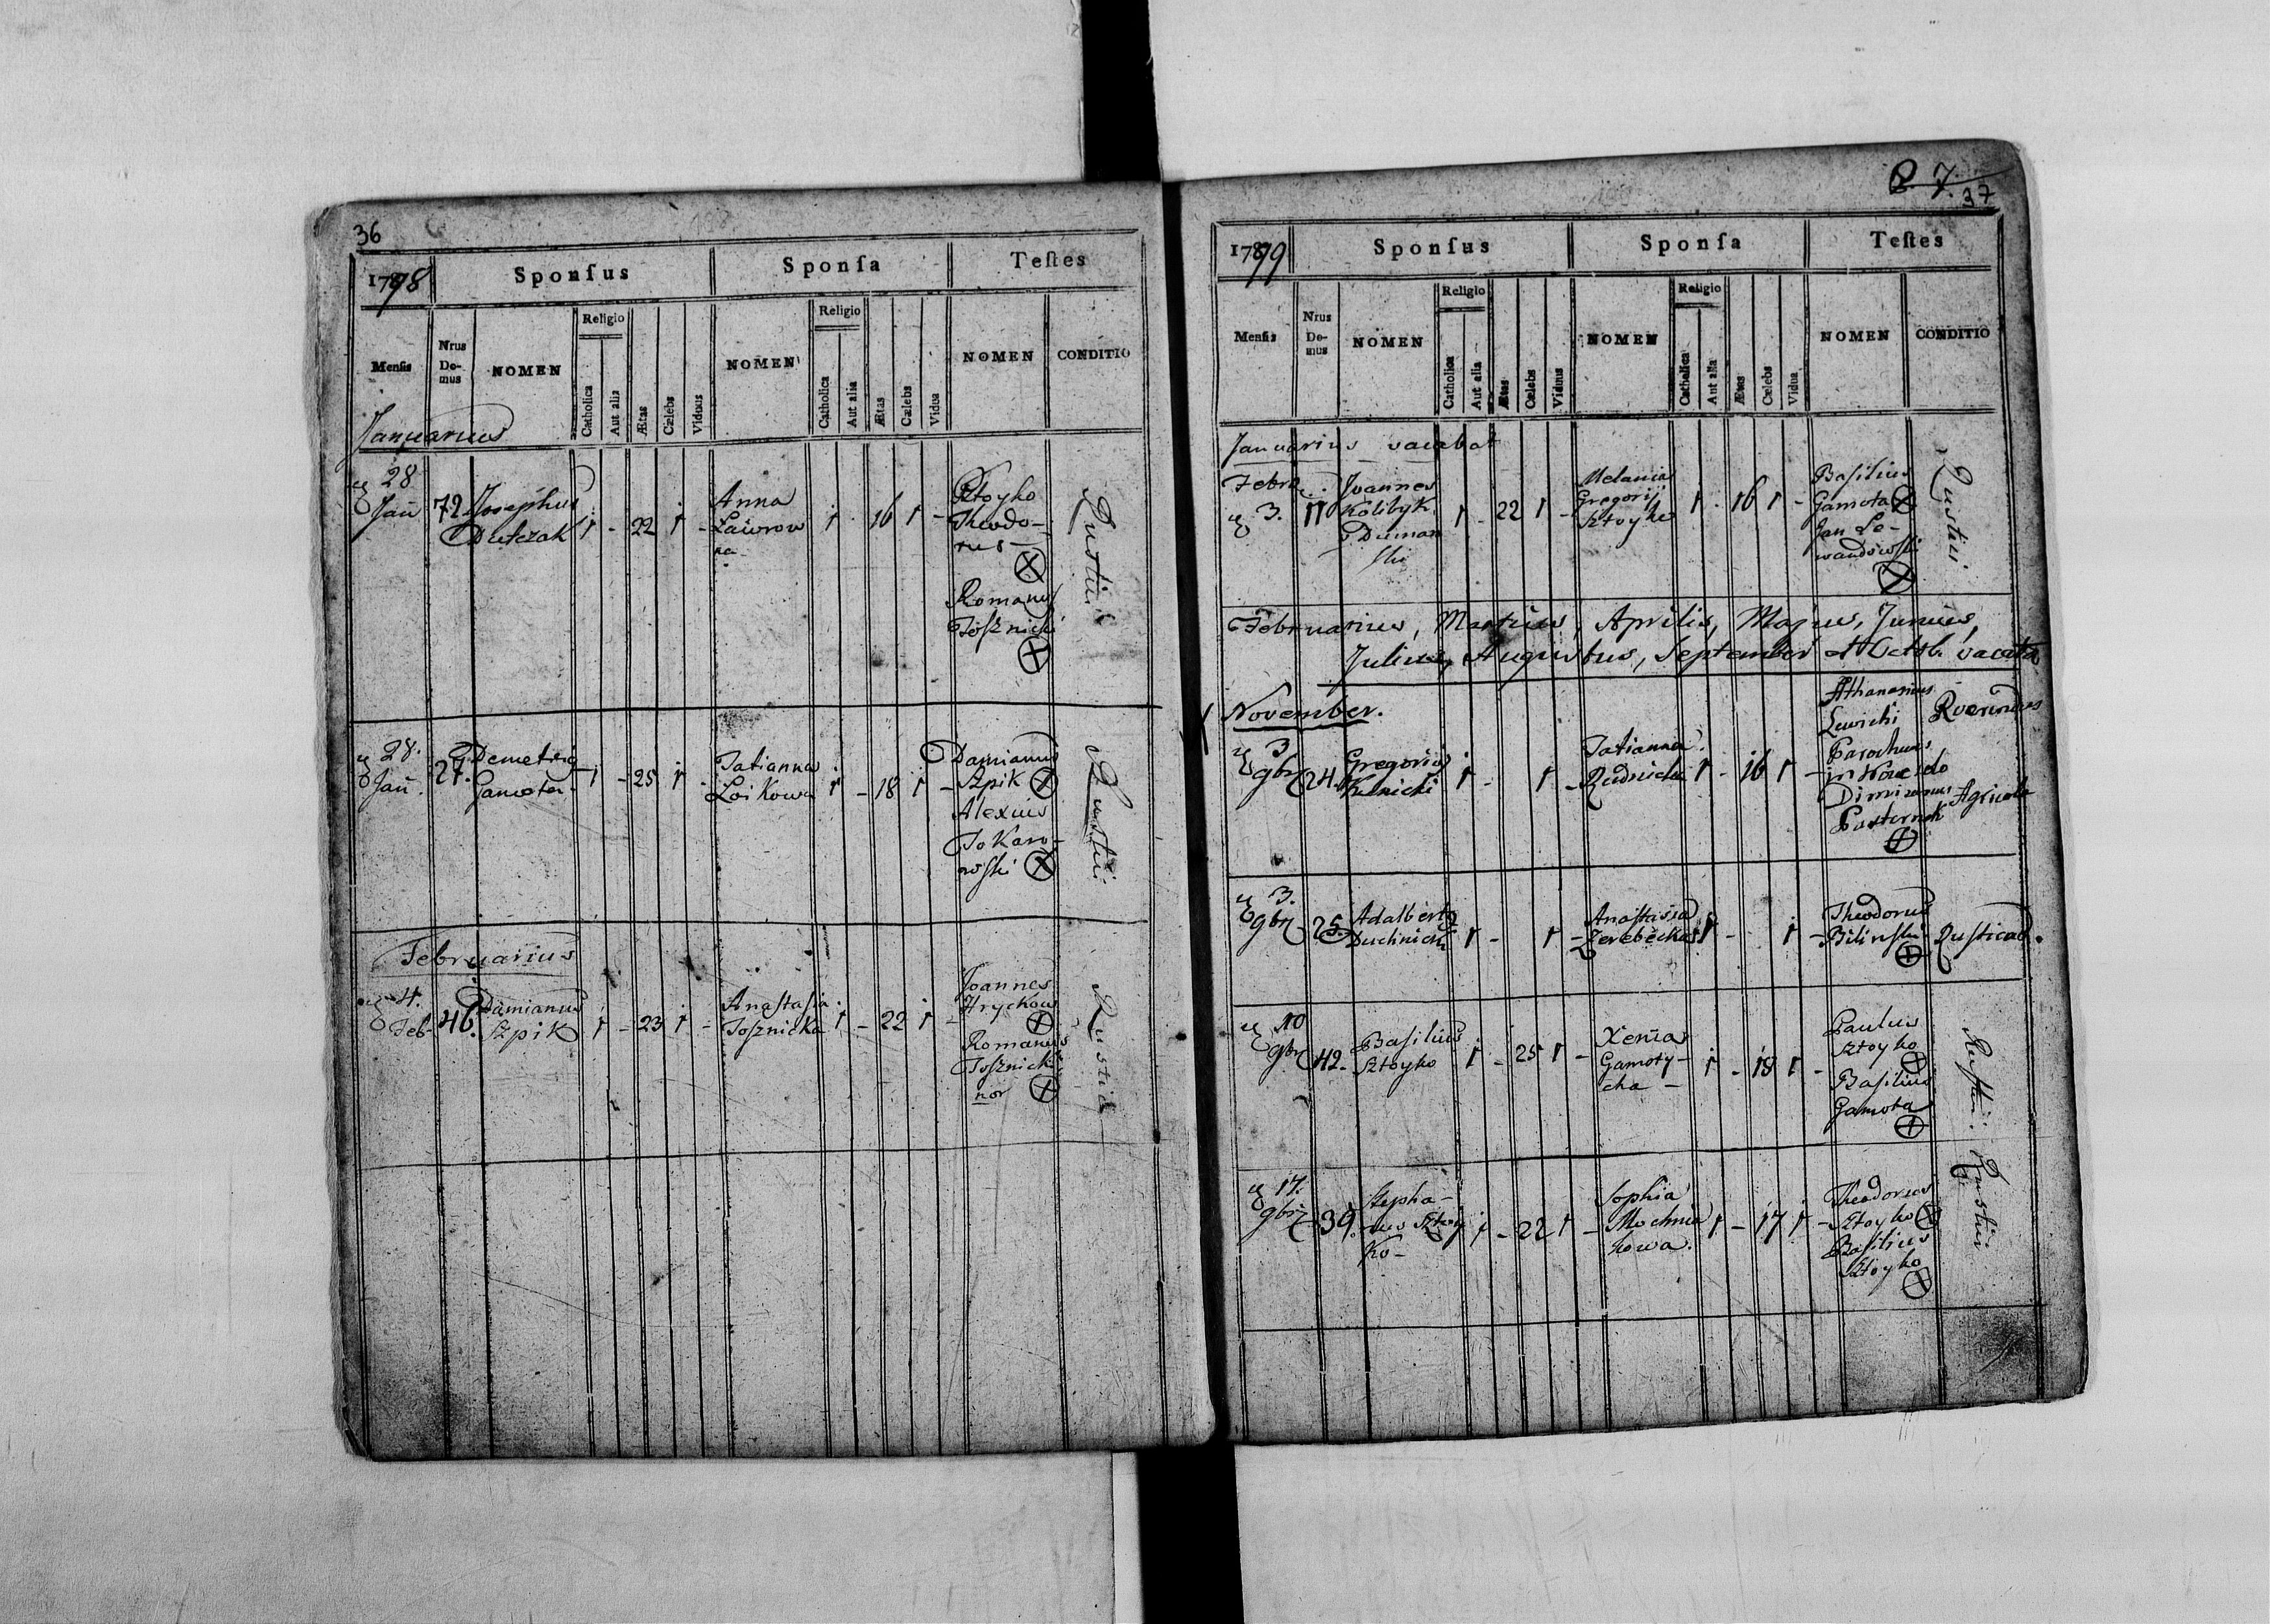 36
1798
Sponſus
Sponſa
Teſtes
Menſis
Nrus Domus
NOMEN
Religio
Catholica
Aut alia
Ætas
Cælebs
Viduus
NOMEN
Religio
Catholica
Aut alia
Ætas
Cælebs
Vidua
NOMEN
CONDITIO
Januarius
28 Jañ
72
Josephus
Dutczak
1 - 22 1 -
Anna
Lawrow
na
1 - 16 1 -
Sztoyko
Theodo-
rus
Romanus
Toſznicki
Rustici
28. Jañ.
27.
Demetrig
Gamota
1 - 25 1 -
Tatianna
Loikowa
1 - 18 1 -
Damianus
Szpik
Alexius
Tokaro-
wſki
Rustici
Februarius
4. Feb
46.
Damianus
Szpik
1 - 23 1 -
Anastaſia
Toſznicka
1 - 22 1 -
Joannes
Hryckow
Romanus
Toſznicki
nor
Rustici
37
1799
Sponſus
Sponſa
Teſtes
Menſis
Nrus Domus
NOMEN
Religio
Catholica
Aut alia
Ætas
Cælebs
Viduus
NOMEN
Religio
Catholica
Aut alia
Ætas
Cælebs
Vidua
NOMEN
CONDITIO
Januarius vacabat
Febr. 3.
11
Joannes
Kolibyk
Duman
ſki
1 - 22 1 -
Melania
Gregorij
Sztoyko
1 - 16 1 -
Baſilius
Gamota
Jan Le-
wandowſki
Rustici
Februarius, Martius, Aprilis, Majus, Junius,
Julius, Augustus, September et Octob. vacata
November.
3 9br
24.
Gregorius
Kunicki
1 - 1 -
Tatianna
Rudnicka
1 - 16 1 -
Athanasius
Lewicki
Parochus
in Nowesło
Dimianus
Pasternak
Agricola
3. 9br
25.
Adalbertg
Duchnicki
1 - 1 -
Anastasia
Zerebecka
1 - 1 -
Theodorus
Bilinſki
10 9br
42.
Baſilius
Sztoyko
1 - 25 1 -
Xenia
Gamoty-
cha -
1 - 19 1 -
Paulus
Sztoyko
Baſilius
Gamota
Rustici
17. 9br
39.
Stepha-
nus Sztoy
ko -
1 - 22 1 -
Sophia
Mochna
kowa.
1 - 17 1 -
Theodorus
Sztoyko
Baſilius
Sztoyko
Rustici